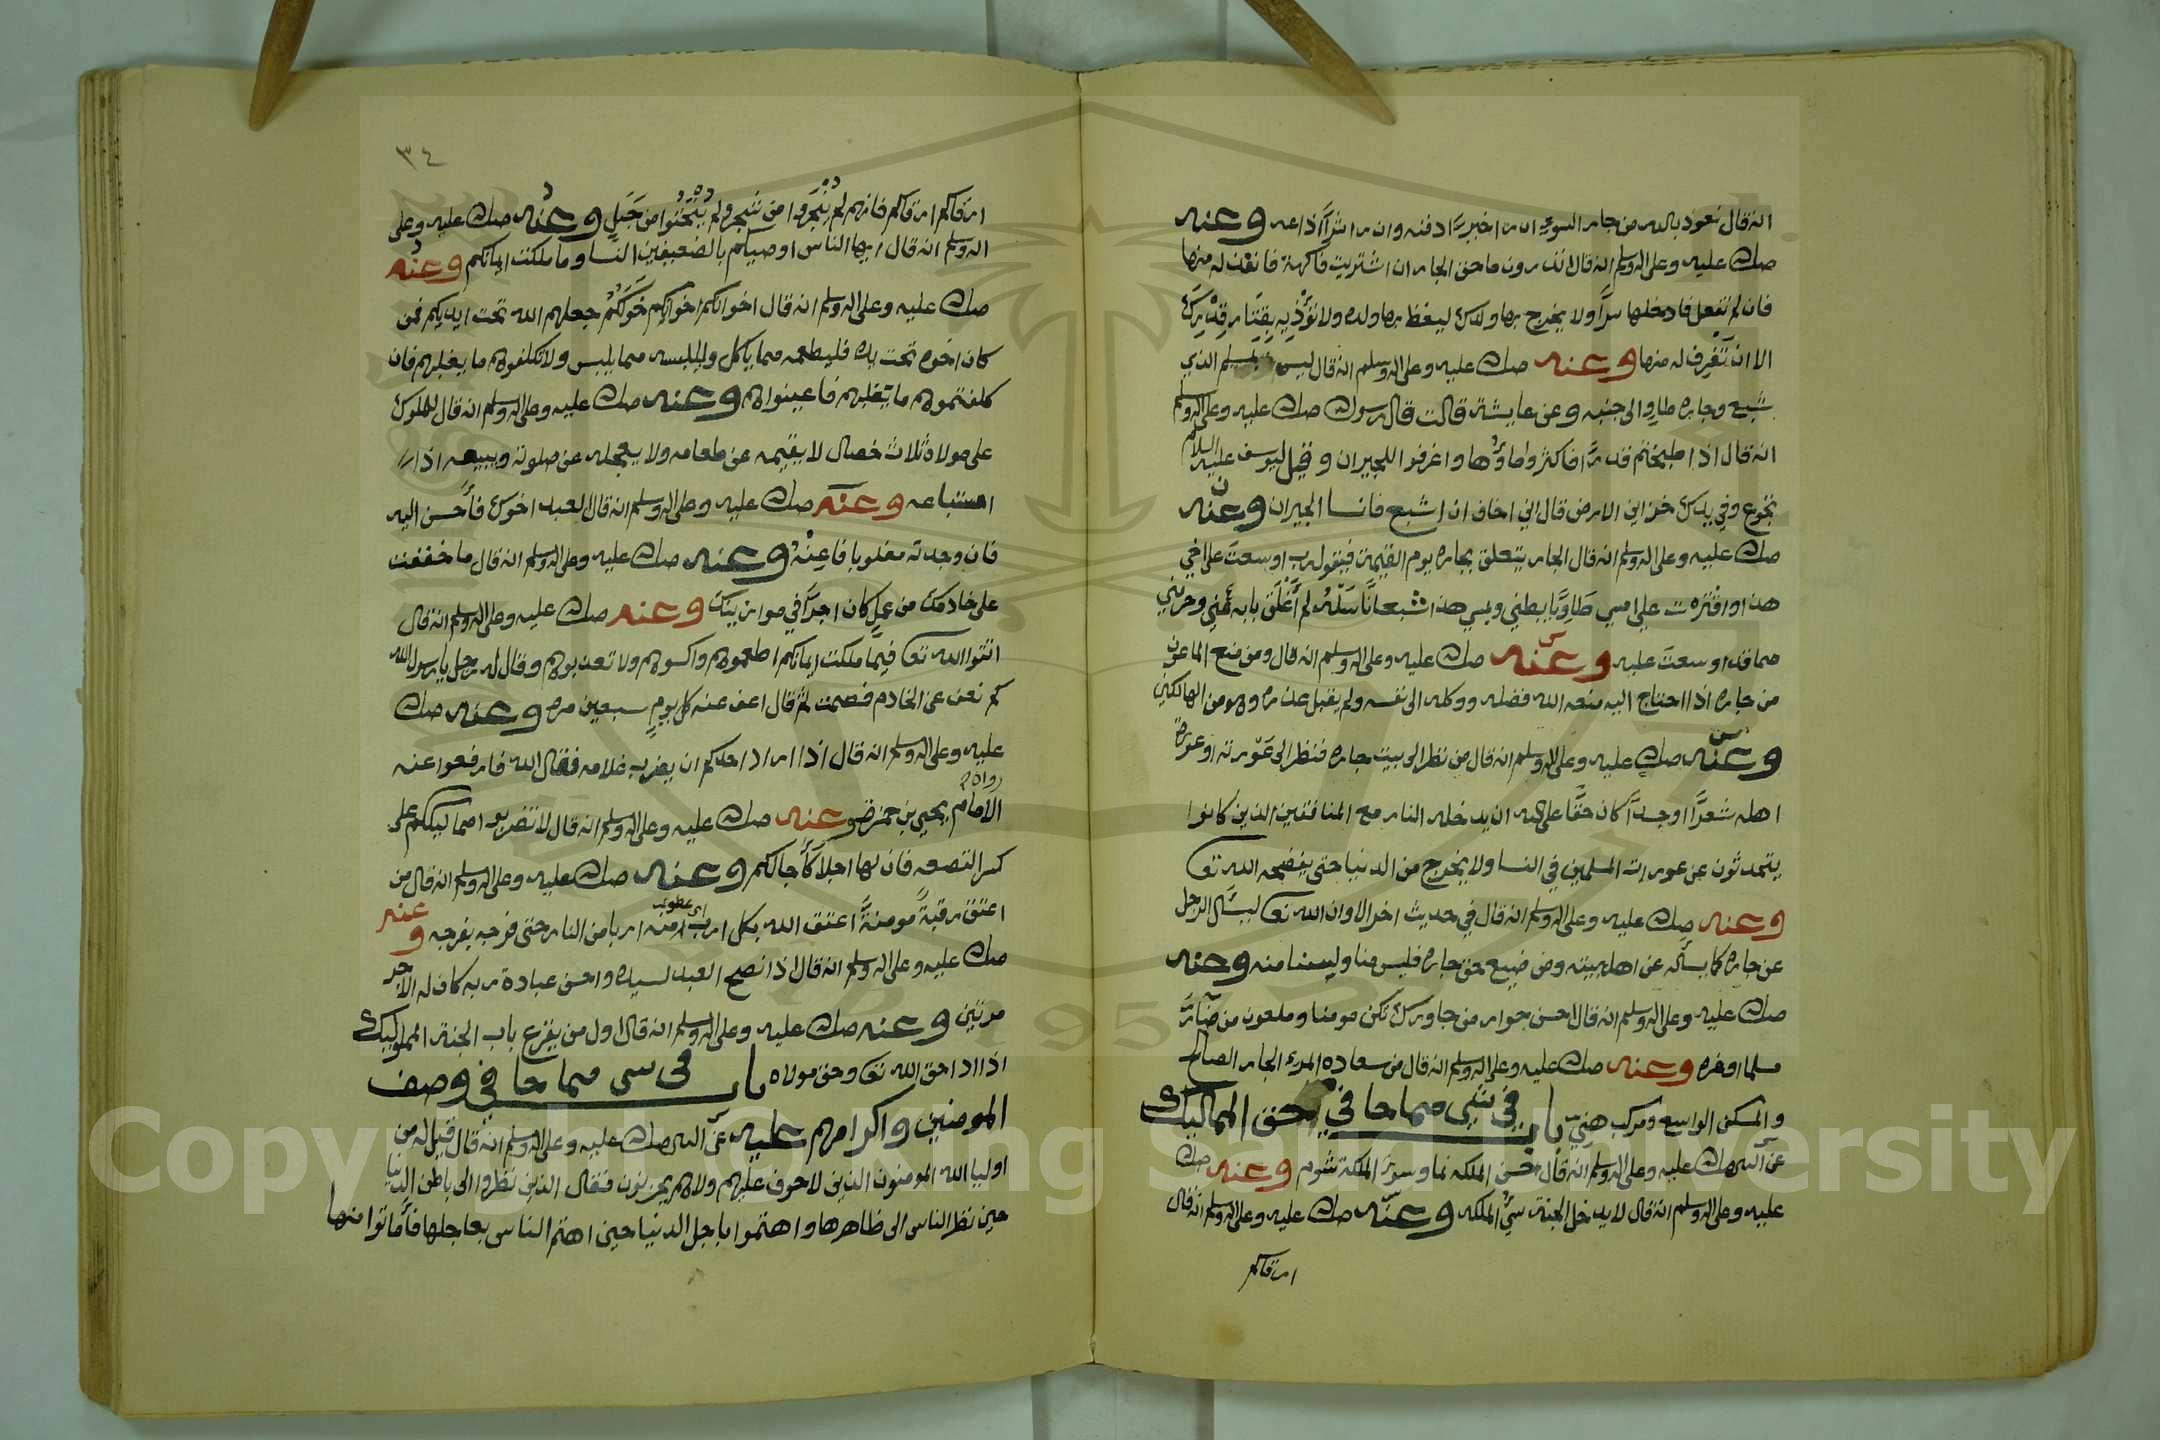 انه قال نعوذ بالله من جار السوء ان را خيرًا دفنه وان را شرًّا اذاعه وعنه
صلى عليه وعلى اله وسلم انه قال اتدرون ما حق الجار ان اشتريت فاكهة فانفت له منها
فان لم تفعل فادخلها سرًّا ولا يخرج بها ولدك ليغظ بها ولده ولا تؤذيه بقتار قدرك
الا ان تغرف له منها وعنه صلى عليه وعلى اله وسلم انه قال ليس بمسلم الذي
شبع وجاره طاو الى جنبه وعن عايشة قالت قال رسول صلى عليه وعلى اله وسلم
انه قال اذا طبختم قدرًا فاكثروا ماؤها واغرفوا للجيران وقيل ليوسف عليه السلام
تجوع وفي يدك خزاين الارض قال اني اخاف ان اشبع فانسا الجيران وعنه
صلى عليه وعلى اله وسلم انه قال الجار يتعلق بجاره يوم القيمة فيقول رب اوسعت على اخي
هذا واقترت علي امسي طاويًا بطني ويمسي هذا شبعانًا سله لم أغلق بابه عني وحرمني
مما قد اوسعت عليه وعنه صلى عليه وعلى اله وسلم انه قال ومن منع الماعون
من جاره اذا احتاج اليه منعه الله فضله ووكله الى نفسه ولم يقبل عذره وهو من الهالكين
وعنه صلى عليه وعلى اله وسلم انه قال من نظر الى بيت جاره فنظر الى عورته او عورة
اهله شعرًا او جسدًا كان حقًّا على الله ان يدخله النار مع المنافقين الذين كانوا
يتحدثون عن عورات المسلمين في النسا ولا يخرج من الدنيا حتى يفضحه الله تعا
وعنه صلى عليه وعلى اله وسلم انه قال في حديث اخر الا وان الله تعا ليسأل الرجل
عن جاره كما يسأله عن اهل بيته ومن ضيع حق جاره فليس منا ولسنا منه وعنه
صلى عليه وعلى اله وسلم انه قال احسن جوار من جاورك تكن مومنا وملعون من ضارّ
مسلما او غره وعنه صلى عليه وعلى اله وسلم انه قال من سعادة المرء الجار الصالح
والمسكن الواسع ومركب هني باب في شي مما جا في حق المماليك
عن النبي صلى عليه وعلى اله وسلم انه قال حسن الملكه نما وسوء الملكة شوم وعنه صلى
عليه وعلى اله وسلم انه قال لا يدخل الجنة سيئ الملكه وعنه صلى عليه وعلى اله وسلم انه قال
ارقاكم
٣٤
ارقاكم ارقاكم فانهم لم ينجروا من شجر ولم ينحتوا من جبل وعنه صلى عليه وعلى
اله وسلم انه قال ايها الناس اوصيكم بالضعيفين النسا وما ملكت ايمانكم وعنه
صلى عليه وعلى اله وسلم انه قال اخوانكم اخوانكم خولكم جعلهم الله تحت ايديكم فمن
كان اخوه تحت يده فليطعمه مما ياكل وليلبسه مما يلبس ولا تكلفوهم ما يغلبهم فان
كلفتموهم ما يغلبهم فاعينوهم وعنه صلى عليه وعلى اله وسلم انه قال للملوك
على مولاه ثلاث خصال لا يقيمه عن طعامه ولا يعجله عن صلوته ويبيعه اذا
استباعه وعنه صلى عليه وعلى اله وسلم انه قال العبد اخوك فأحسن اليه
فان وجدته مغلوبا فاعنه وعنه صلى عليه وعلى اله وسلم انه قال ما خففت
على خادمك من عمل كان اجرًا في موازينك وعنه صلى عليه وعلى اله وسلم انه قال
اتقوا الله تعا فيما ملكت ايمانكم اطعموهم واكسوهم ولا تعذبوهم وقال له رجل يا رسول الله
كم نعف عن الخادم فصمت ثم قال اعف عنه كل يوم سبعين مره وعنه صلى
عليه وعلى اله وسلم انه قال اذا اراد احدكم ان يضرب غلامه فقال الله فارفعوا عنه
رواه
الامام يحيى بن حمزه وعنه صلى عليه وعلى اله وسلم انه قال لا تضربوا مماليككم على
كسر القصعه فان لها اجلًا كآجالكم وعنه صلى عليه وعلى اله وسلم انه قال من
اعتق رقبةً مومنةً اعتق الله بكل ارب منه اربا من النار حتى فرجه بفرجه وعنه
اي عضو
صلى عليه وعلى اله وسلم انه قال اذا نصح العبد لسيده واحسن عبادة ربه كان له الاجر
مرتين وعنه صلى عليه وعلى اله وسلم انه قال اول من يقرع باب الجنة المملوك
اذا ادا حق الله تعا وحق مولاه باب في شي مما جا في وصف
المومنين واكرامهم عليه عن النبي صلى عليه وعلى اله وسلم انه قال قيل له من
اوليا الله المومنون الذين لا خوف عليهم ولا هم يحزنون فقال الذين نظروا الى باطن الدنيا
حين نظر الناس الى ظاهرها واهتموا باجل الدنيا حين اهتم الناس بعاجلها فأماتوا منها
Copyright © King Saud University